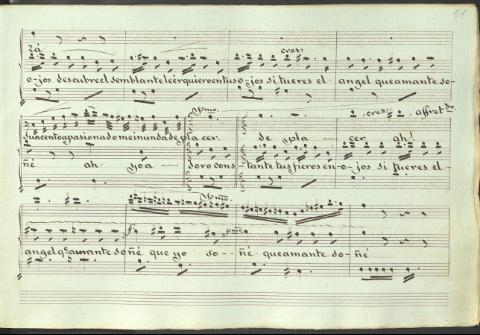 51
rá cres:
ojos descubre el semblante leer quieren tus ojos si fueres el angel que amante so
pmo. cres: affret.do
su acento apasionado me inunda de placer. de pla - cer ah!
ñé ah yo a - doro cons - tante tus fieros en - o - jos si fueres el
pmo.
pmo.
angel q.e amante soñé que yo so - - ñé que amante so - ñé